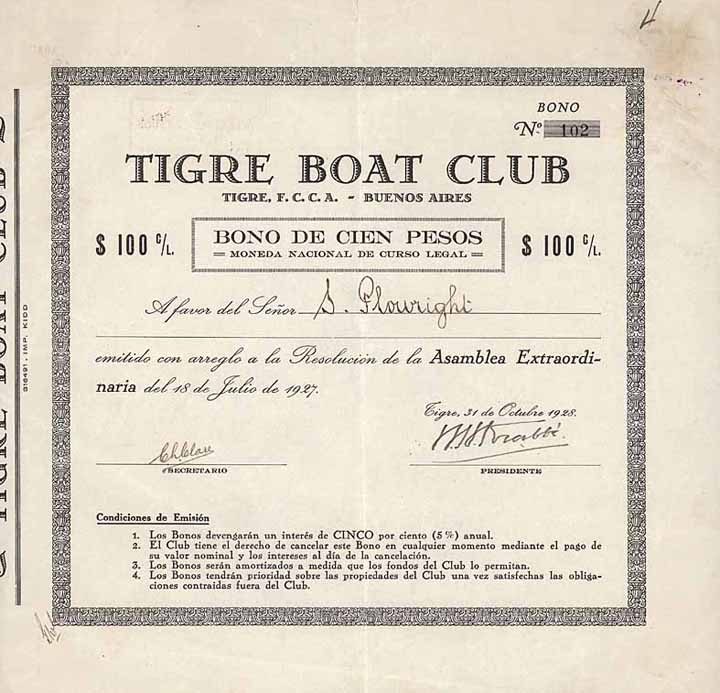 BONO
Nº 102
TIGRE BOAT CLUB
TIGRE, F. C. C. A. - BUENOS AIRES
$ 100 C/L. BONO DE CIEN PESOS $ 100 C/L.
MONEDA NACIONAL DE CURSO LEGAL
A favor del Señor S. Plowright
emitido con arreglo a la Resolución de la Asamblea Extraordi-
naria del 18 de Julio de 1927.
Tigre, 31 de Octubre 1928.
SECRETARIO
PRESIDENTE
Condiciones de Emisión
1. Los Bonos devengarán un interés de CINCO por ciento (5 %) anual.
2. El Club tiene el derecho de cancelar este Bono en cualquier momento mediante el pago de
su valor nominal y los intereses al día de la cancelación.
3. Los Bonos serán amortizados a medida que los fondos del Club lo permitan.
4. Los Bonos tendrán prioridad sobre las propiedades del Club una vez satisfechas las obliga-
ciones contraídas fuera del Club.
TIGRE BOAT CLUB
316491, IMP. KIDD